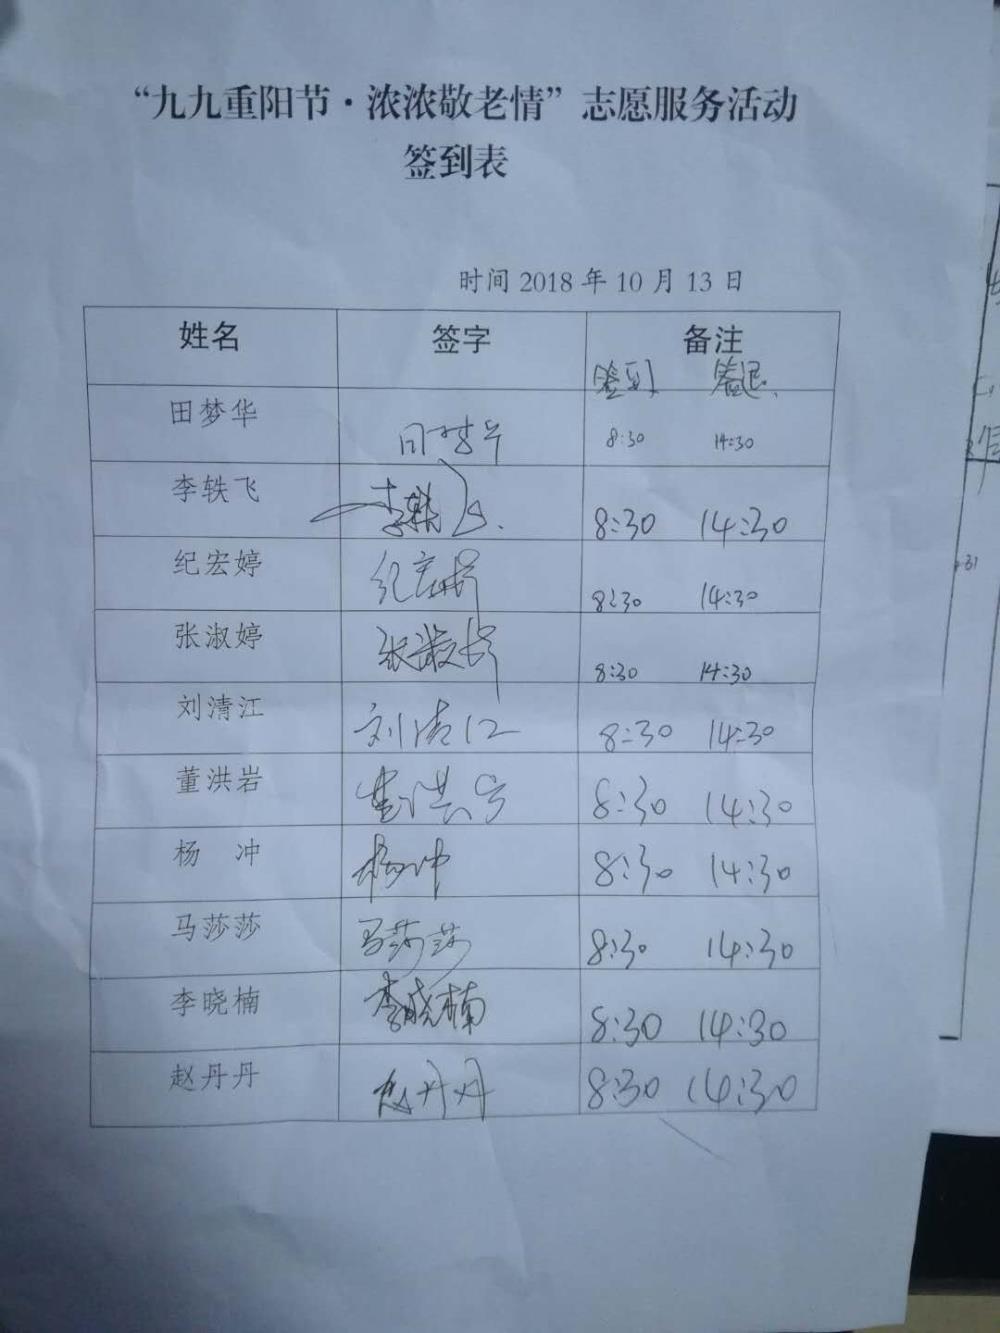 “九九重阳节·浓浓敬老情”志愿服务活动
签到表
时间 2018 年 10 月 13 日
姓名 签字 备注
签到 签退
田梦华 田梦华 8:30 14:30
李轶飞 李轶飞 8:30 14:30
纪宏婷 纪宏婷 8:30 14:30
张淑婷 张淑婷 8:30 14:30
刘清江 刘清江 8:30 14:30
董洪岩 董洪岩 8:30 14:30
杨 冲 杨冲 8:30 14:30
马莎莎 马莎莎 8:30 14:30
李晓楠 李晓楠 8:30 14:30
赵丹丹 赵丹丹 8:30 14:30